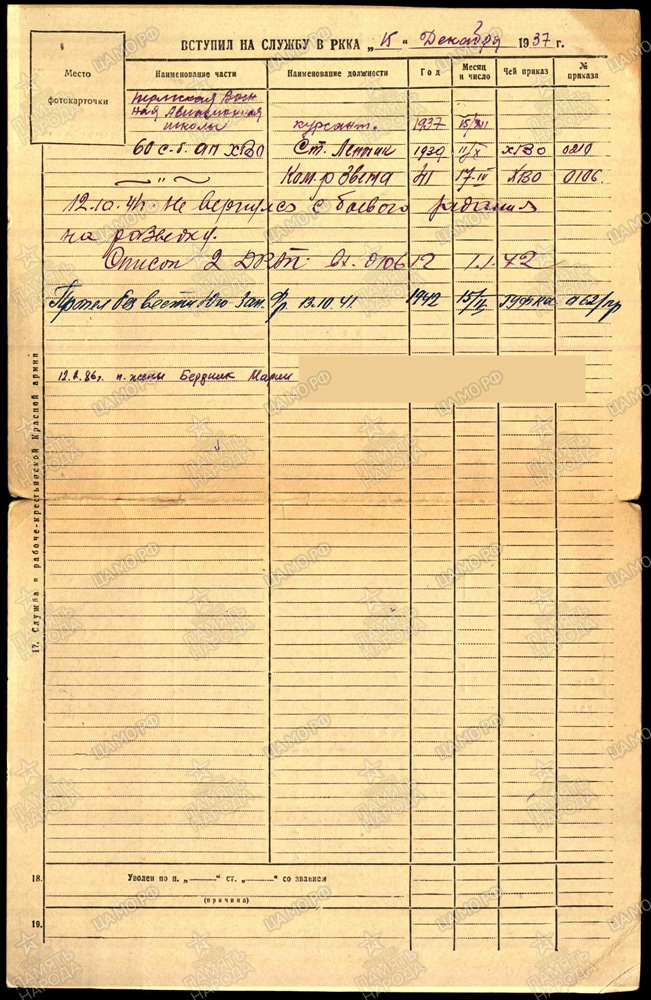 ВСТУПИЛ НА СЛУЖБУ В РККА „ 15 “ Декабря 1937 г.
Место фотокарточки
Наименование части Наименование должности Год Месяц и число Чей приказ № приказа
ная Авиационная
школы курсант. 1937 15/XII
60 с.б. ап ХВО Ст. Летчик 1939 11/X ХВО 0210
— " — Ком-р звена 41 17-IV ХВО 0106.
12.10.41г. Не вернулся с боевого задания
на разведку.
Список 2 ДРАП. Вх. 010612 1.1.42
Пропал без вести Юго Зап. Фр. 13.10.41. 1942 15/IV ГУФКА 0162/пр
п. жены Бердник Марии
17. Служба в рабоче-крестьянской Красной армии
18. Уволен по п. „ “ ст. „ “ со звания
(причина)
19.
ПАМЯТЬ НАРОДА
ЦАМО.РФ